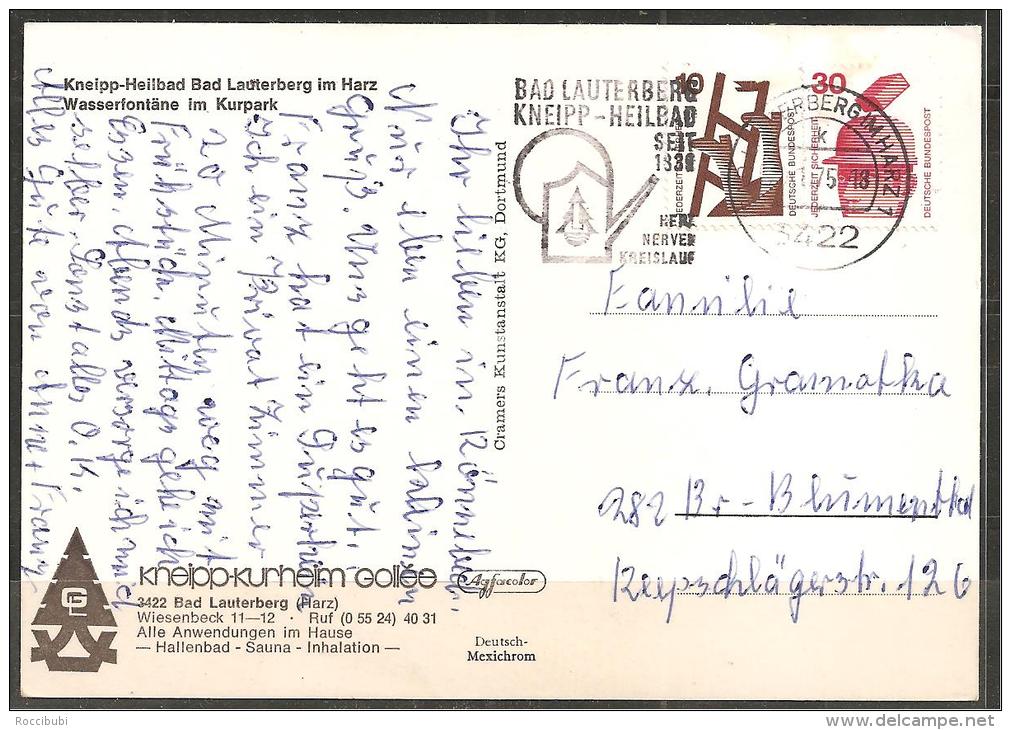 Kneipp-Heilbad Bad Lauterberg im Harz
Wasserfontäne im Kurpark
Ihr lieben in. Rönnebe.
Nur eben einen kleinen
Gruß. Uns geht es gut,
Franz hat ein
ich ein Privat Zimmer
20 Minuten weg mit
Frühstück. Mittags gehe ich
Essen Abends versorge ich mich
selber. Sonst alles O.K.
Alles Gute von Anne + Franz
Kneipp-Kurheim Gollée
3422 Bad Lauterberg (Harz)
Wiesenbeck 11—12 · Ruf (0 55 24) 40 31
Alle Anwendungen im Hause
— Hallenbad - Sauna - Inhalation —
Cramers Kunstanstalt KG, Dortmund
Agfacolor
Deutsch-
Mexichrom
BAD LAUTERBERG
KNEIPP-HEILBAD
SEIT
1839
HERZ
NERVEN
KREISLAUF
10
JEDERZEIT
DEUTSCHE BUNDESPOST
30
JEDERZEIT SICHERHEIT
DEUTSCHE BUNDESPOST
ERBERG IM HARZ 1
3422
Familie
Franz. Gramatka
282 Br-Blumenthal
Reepschlägerstr. 126
Roccibubi
www.delcampe.net